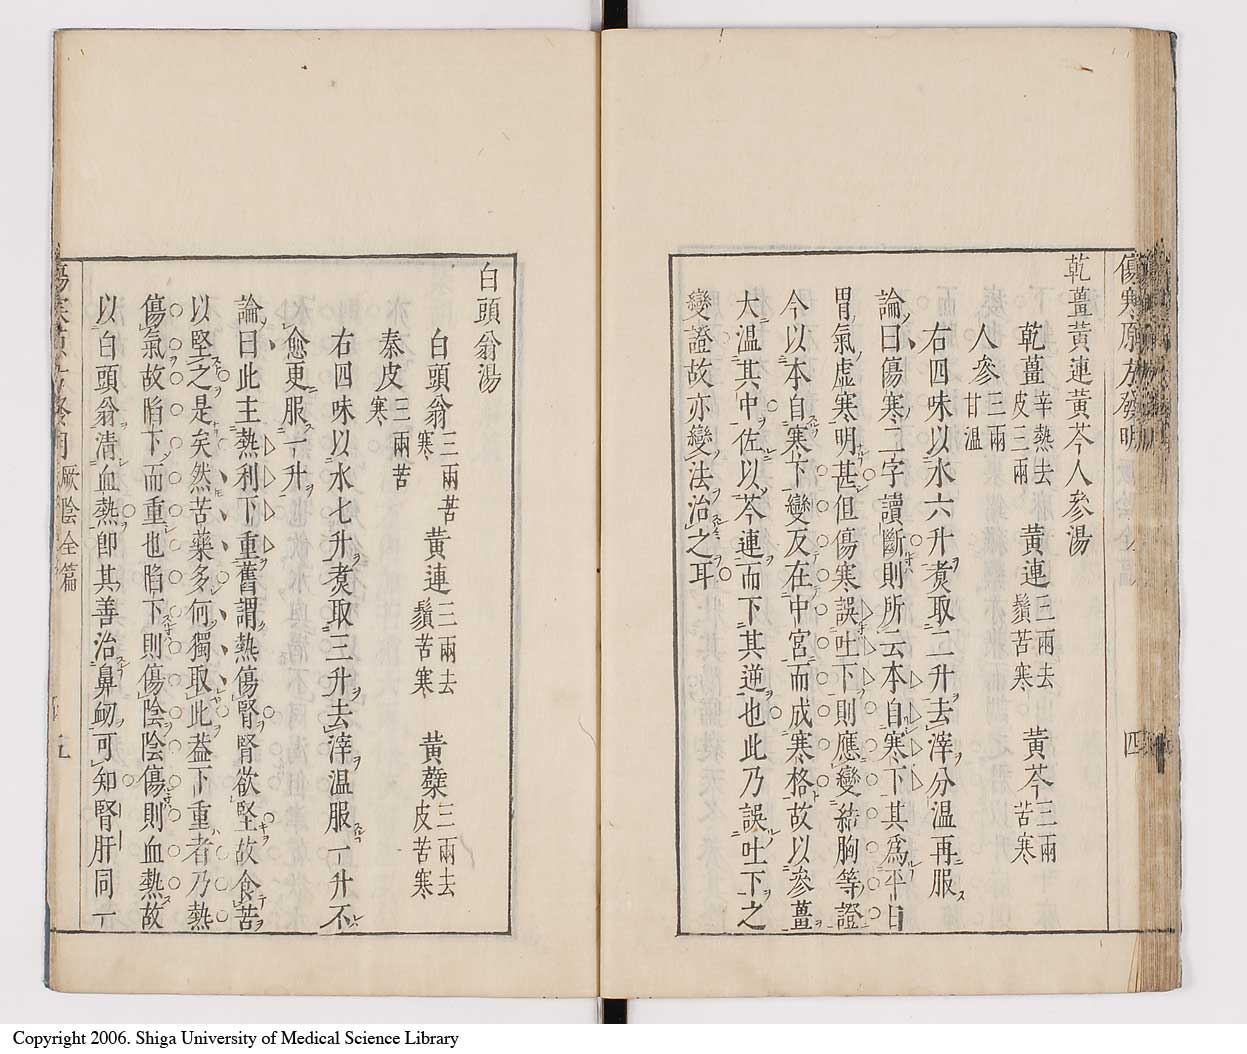 傷寒原方發明
四
乾薑黃連黃芩人參湯
乾薑辛熱去皮三兩 黃連三兩去鬚苦寒 黃芩三兩苦寒
人參三兩甘溫
右四味以水六升煑取二升去滓分溫再服
論曰傷寒二字讀斷則所云本自寒下其爲平日
胃氣虛寒明甚但傷寒誤吐下則應變結胸等證
今以本自寒下變反在中宮而成寒格故以參薑
大溫其中佐以芩連而下其逆也此乃誤吐下之
變證故亦變法治之耳
白頭翁湯
白頭翁三兩苦寒 黃連三兩去鬚苦寒 黃蘗三兩去皮苦寒
秦皮三兩苦寒
右四味以水七升煑取三升去滓溫服一升不
愈更服一升
論曰此主熱利下重舊謂熱傷腎腎欲堅故食苦
以堅之是矣然苦藥多何獨取此葢下重者乃熱
傷氣故陷下而重也陷下則傷陰陰傷則血熱故
以白頭翁清血熱卽其善治鼻衂可知腎肝同一
厥陰全篇
五
Copyright 2006. Shiga University of Medical Science Library